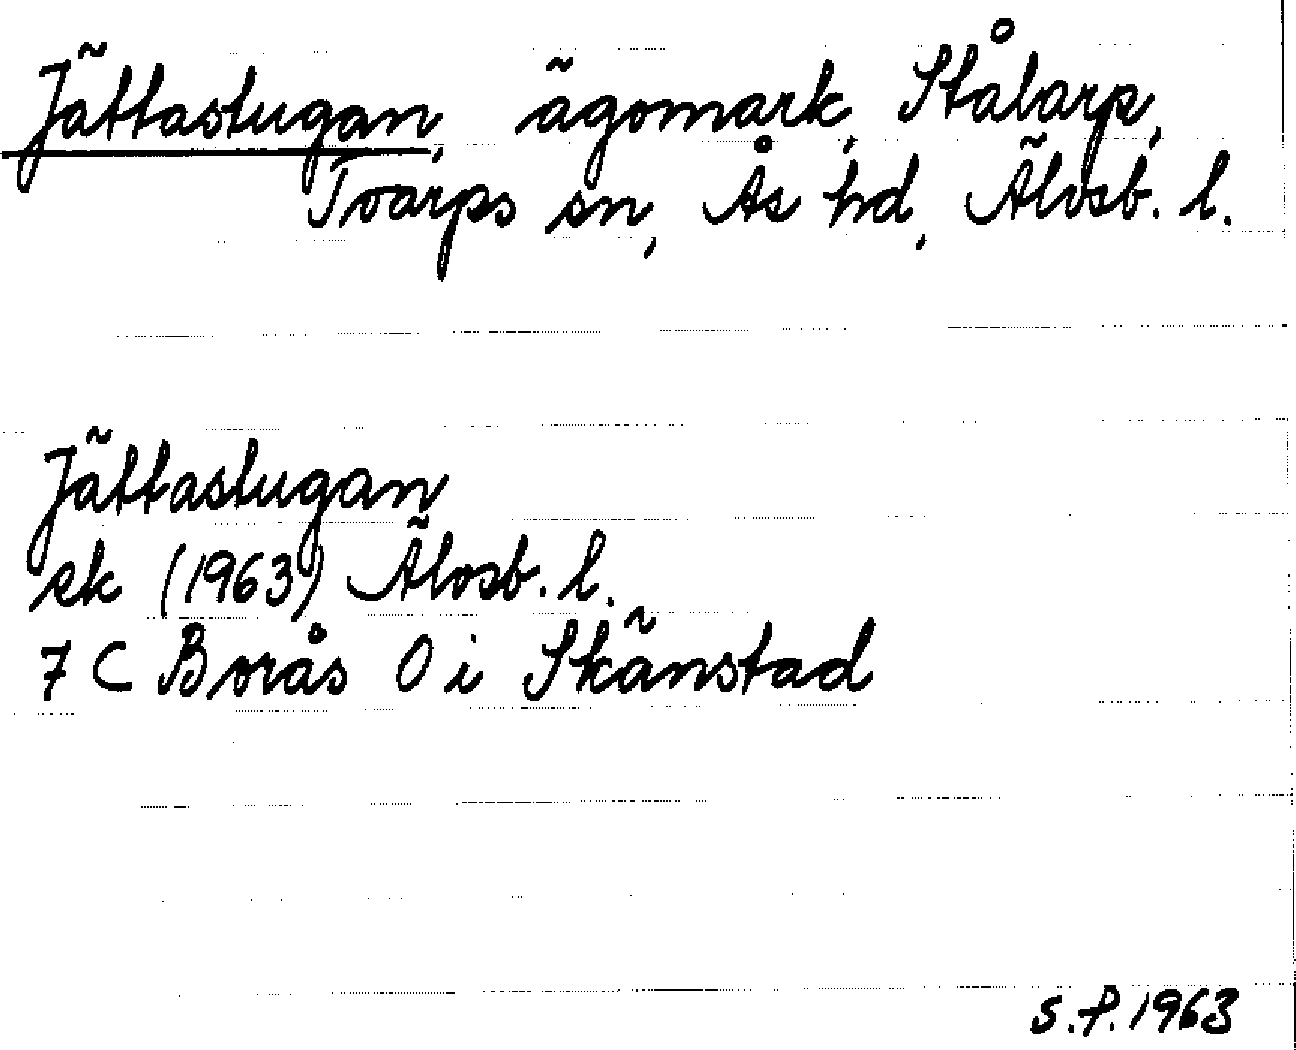 Jättastugan, ägomark, Stålarp,
Toarps sn, Ås hd, Älvsb. l.
Jättastugan
ek (1963) Älvsb. l.
7 C Borås O i Skänstad
S.F. 1963